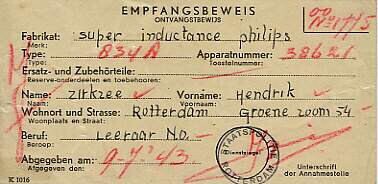 EMPFANGSBEWEIS
ONTVANGSTBEWIJS
Fabrikat: super inductance philips
Merk:
Type: 834A Apparatnummer: 38621
Type: Toestelnummer:
Ersatz- und Zubehörteile:
Reserve-onderdeelen en toebehooren:
Name: Zirkzee Vorname: Hendrik
Naam: Voornaam:
Wohnort und Strasse: Rotterdam Groene zoom 54
Woonplaats en Straat:
Beruf: Leeraar No. —
Beroep:
Abgegeben am: 9-7-'43
Afgegeven den:
STAATSPOLITIE ROTTERDAM
Dienstsiegel
Unterschrift
der Annahmestelle
K 1016